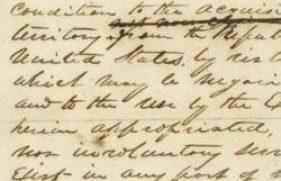 condition to the acquisi
territory from the Repub
United States, by
which may be
and to the use by the
herein appropriated,
nor involuntary ser
exist in any part of